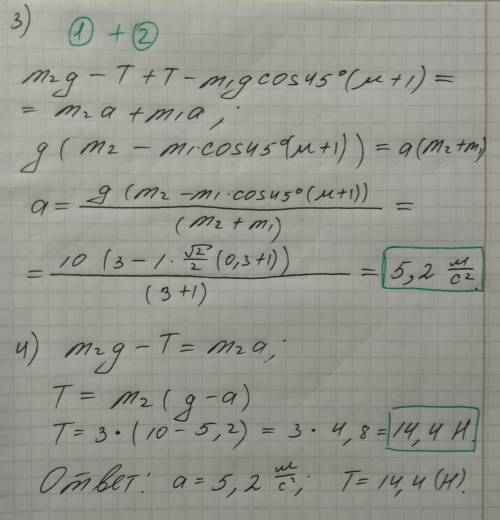 3) ① + ②
m₂g − T + T − m₁g cos45°(μ+1) =
= m₂a + m₁a ;
g ( m₂ − m₁·cos45°(μ+1) ) = a(m₂+m₁)
a = g (m₂ − m₁·cos45°(μ+1)) / (m₂ + m₁) =
= 10 (3 − 1 · √2/2 (0,3+1)) / (3+1) = 5,2 м/с².
4) m₂g − T = m₂a ;
T = m₂ (g − a)
T = 3 · (10 − 5,2) = 3 · 4,8 = 14,4 Н.
Ответ: a = 5,2 м/с² ; T = 14,4 (Н).